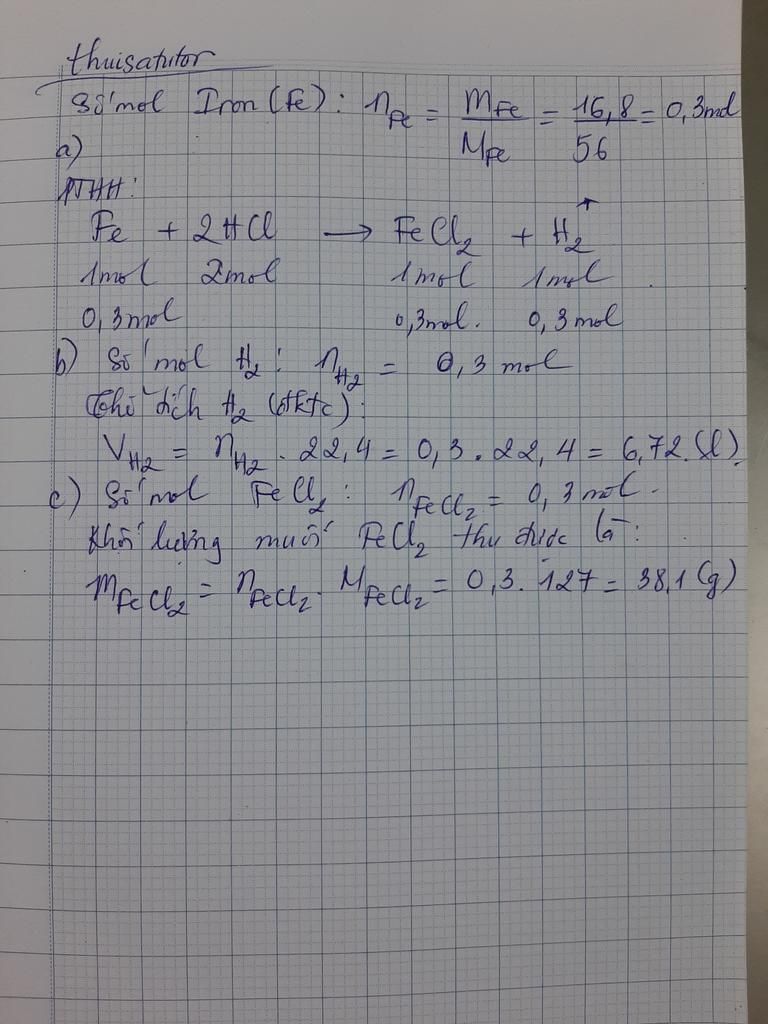 thuisatutor
Số mol Iron (Fe): n_Fe = m_Fe / M_Fe = 16,8 / 56 = 0,3 mol
a)
PTHH:
Fe + 2HCl → FeCl₂ + H₂↑
1mol 2mol 1mol 1mol
0,3mol 0,3mol. 0,3 mol
b) Số mol H₂: n_H₂ = 0,3 mol
Thể tích H₂ (đktc):
V_H₂ = n_H₂ . 22,4 = 0,3 . 22,4 = 6,72 (l)
c) Số mol FeCl₂: n_FeCl₂ = 0,3 mol.
Khối lượng muối FeCl₂ thu được là:
m_FeCl₂ = n_FeCl₂ . M_FeCl₂ = 0,3 . 127 = 38,1 (g)